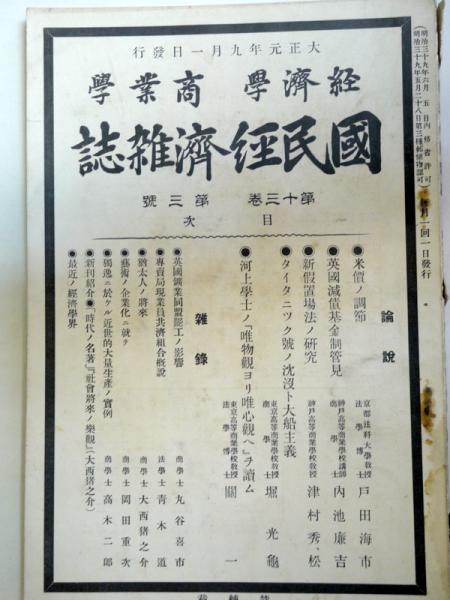 大正元年九月一日發行
經濟學 商業學
國民經濟雜誌
第十三卷 第三號
目次
論說
●米價ノ調節 京都法科大學教授 法學博士 戸田海市
●英國減債基金制管見 神戸高等商業學校講師 商學士 內池廉吉
●新假置場法ノ研究 神戸高等商業學校教授 津村秀松
●タイタニツク號ノ沈沒ト大船主義 東京高等商業學校教授 商學士 堀光龜
●河上學士ノ「唯物觀ヨリ唯心觀ヘ」ヲ讀ム 東京高等商業學校教授 法學博士 關一
雜錄
●英國鑛業同盟罷工ノ影響 商學士 丸谷喜市
●專賣局現業員共濟組合概說 法學士 靑木道
●猶太人ノ將來 商學士 大西猪之介
●藝術ノ企業化ニ就テ 商學士 岡田重次
●獨逸ニ於ケル近世的大量生產ノ實例 商學士 高木二郎
●新刊紹介●「時代ノ名著」「社會將來ノ樂觀」(大西猪之介)
●最近ノ經濟學界
(明治三十九年六月五日內務省許可
明治三十九年五月二十八日第三種郵便物認可)
每月一回一日發行